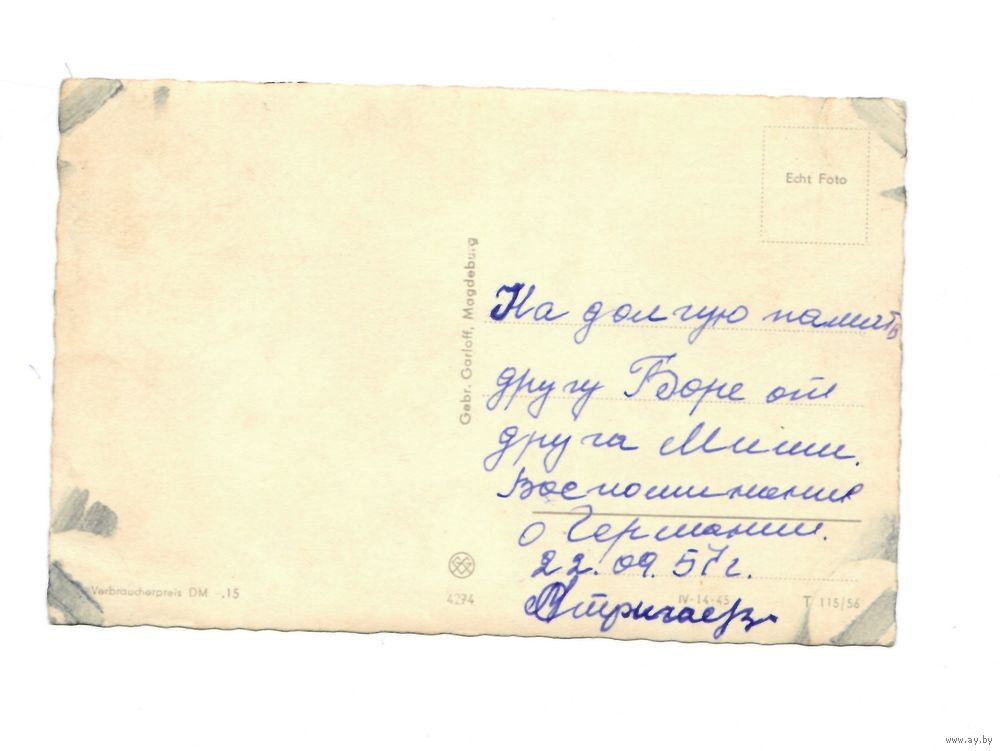 Echt Foto
Gebr. Garloff, Magdeburg
На долгую память
другу Боре от
друга Миши.
Воспоминание
о Германии.
22.09.57г.
Verbraucherpreis DM -.15
4274
IV-14-45
T 115/56
www.ay.by